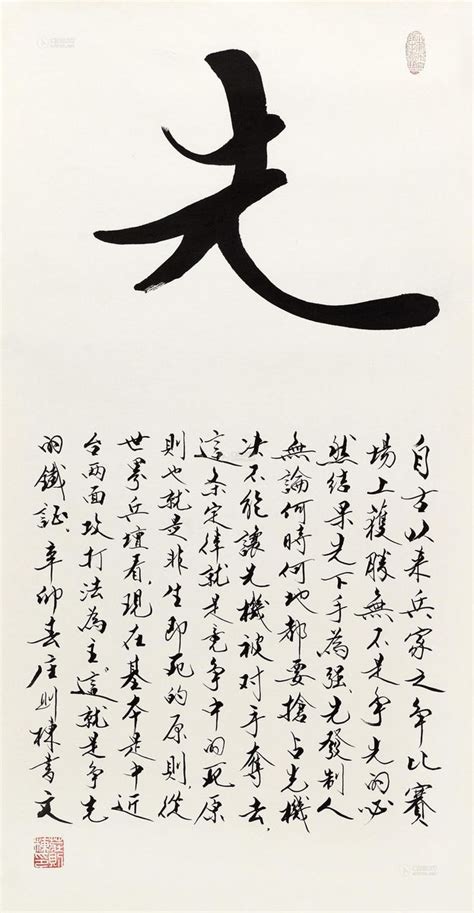 先
自古以来兵家之争比賽
場上獲勝無不是争先的必
然结果先下手為强,先發制人
無論何時何地都要搶占先機
决不能讓先機被对手奪去,
這条定律就是竞争中的死原
則也就是非生即死的原則,從
世界乒壇看,現在基本是中近
台两面攻打法為主,這就是争先
的鐵証.辛卯春庄則棟書文